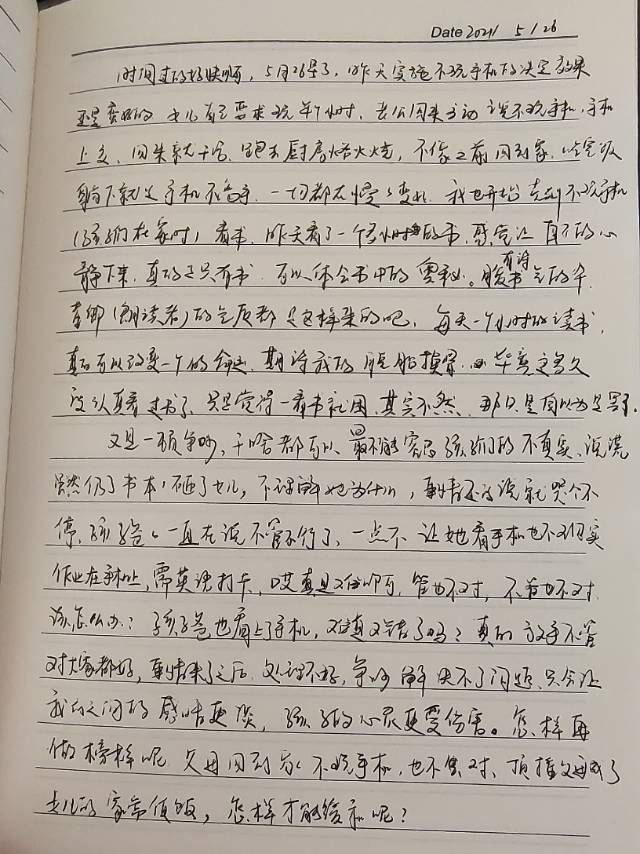 Date 2021 5/26
时间过的好快啊，5月26号了，昨天实施不玩手机的决定效果
还是蛮好的 女儿自己要求玩半个小时，老公回来主动说不玩手机，手机
上交，回来就干活，跑去厨房烙火烧，不像之前回到家，吃完饭
躺下就是手机不离手，一切都在慢慢变化 我也开始克制不玩手机
（孩们在家时）看书，昨天看了一个多小时的书，感觉让自己的心
静下来，真的是只有书 可以体会书中的奥秘。腹有诗书气的华
春卿（朗读者）的气质都是这样来的吧，每天一个小时的读书，
真的可以改变一个的命运，期待我的 毕竟这么久
没认真看过书了，只是觉得一看书就困，其实不然，那只是因为
又是一顿争吵，干啥都可以 最不能容忍孩们的不真实，说谎
居然仍了书本，砸了女儿，不理解她为什么，事情还没说就哭个不
停，孩爸爸一直在说不管不行了，一点不让她看手机也不现实
作业在手机上，需英语打卡，哎真是难啊，管也不对，不管也不对，
该怎么办？孩子爸也看上了手机，难道又错了吗？真的放手不管
对大家都好，事情来了之后，处理不好，争吵解决不了问题，只会让
我们之间的感情更淡，孩子的心灵更受伤害。怎样再
做榜样呢 父母回到家不玩手机，也不 对，顶撞父母成了
女儿的家常便饭，怎样才能缓和呢？